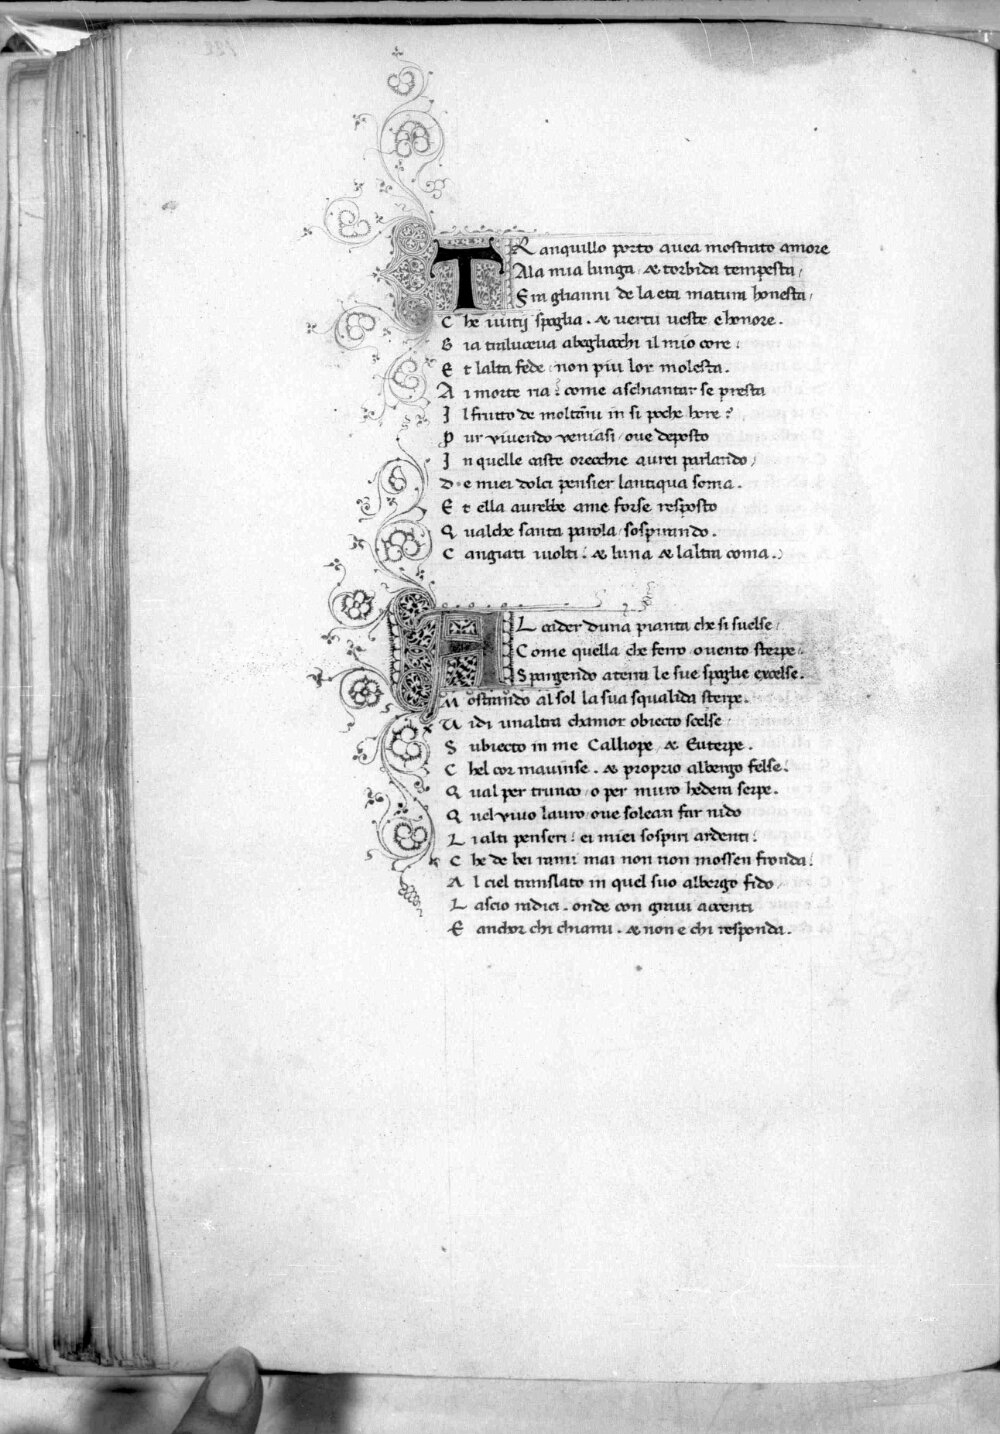 TRanquillo porto avea mostrato amore
Ala mia lunga / & torbida tempesta /
Fra glianni de la eta matura honesta /
Che iuitij spoglia . & vertu veste e honore .
Gia traluceua abegliocchi il mio core :
Et lalta fede / non piu lor molesta .
Ai morte ria ! come aschiantar se presta
Il frutto de moltãni in si poche hore ?
Pur vivendo veniasi / oue deposto
In quelle caste orecchie aurei parlando /
De miei dolci pensier lantiqua soma .
Et ella aurebbe ame forse resposto
Qualche santa parola / sospirando .
Cangiati iuolti : & luna & laltra coma .
AL cader duna pianta che si suelse /
Come quella che ferro / o uento sterpe /
Spargendo a terra le sue spoglie excelse .
Mostrando al sol la sua squalida sterpe .
Vidi unaltra chamor obiecto scelse /
Subiecto in me Calliope / & Euterpe .
Chel cor mauinse . & proprio albergo felse :
Qual per trunco / o per muro hedera serpe .
Quel vivo lauro / oue solean far nido
Li alti penseri : ei miei sospiri ardenti :
Che de bei rami mai non non mossen fronda :
Al ciel translato in quel suo albergo fido /
Lascio radici . onde con graui accenti
E anchor chi chiami . & non e chi responda .